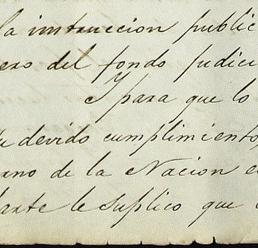 la instruccion public
ero del fondo judici
Y para que lo
u devido cumplimiento,
ano de la Nacion e
parte le suplico que